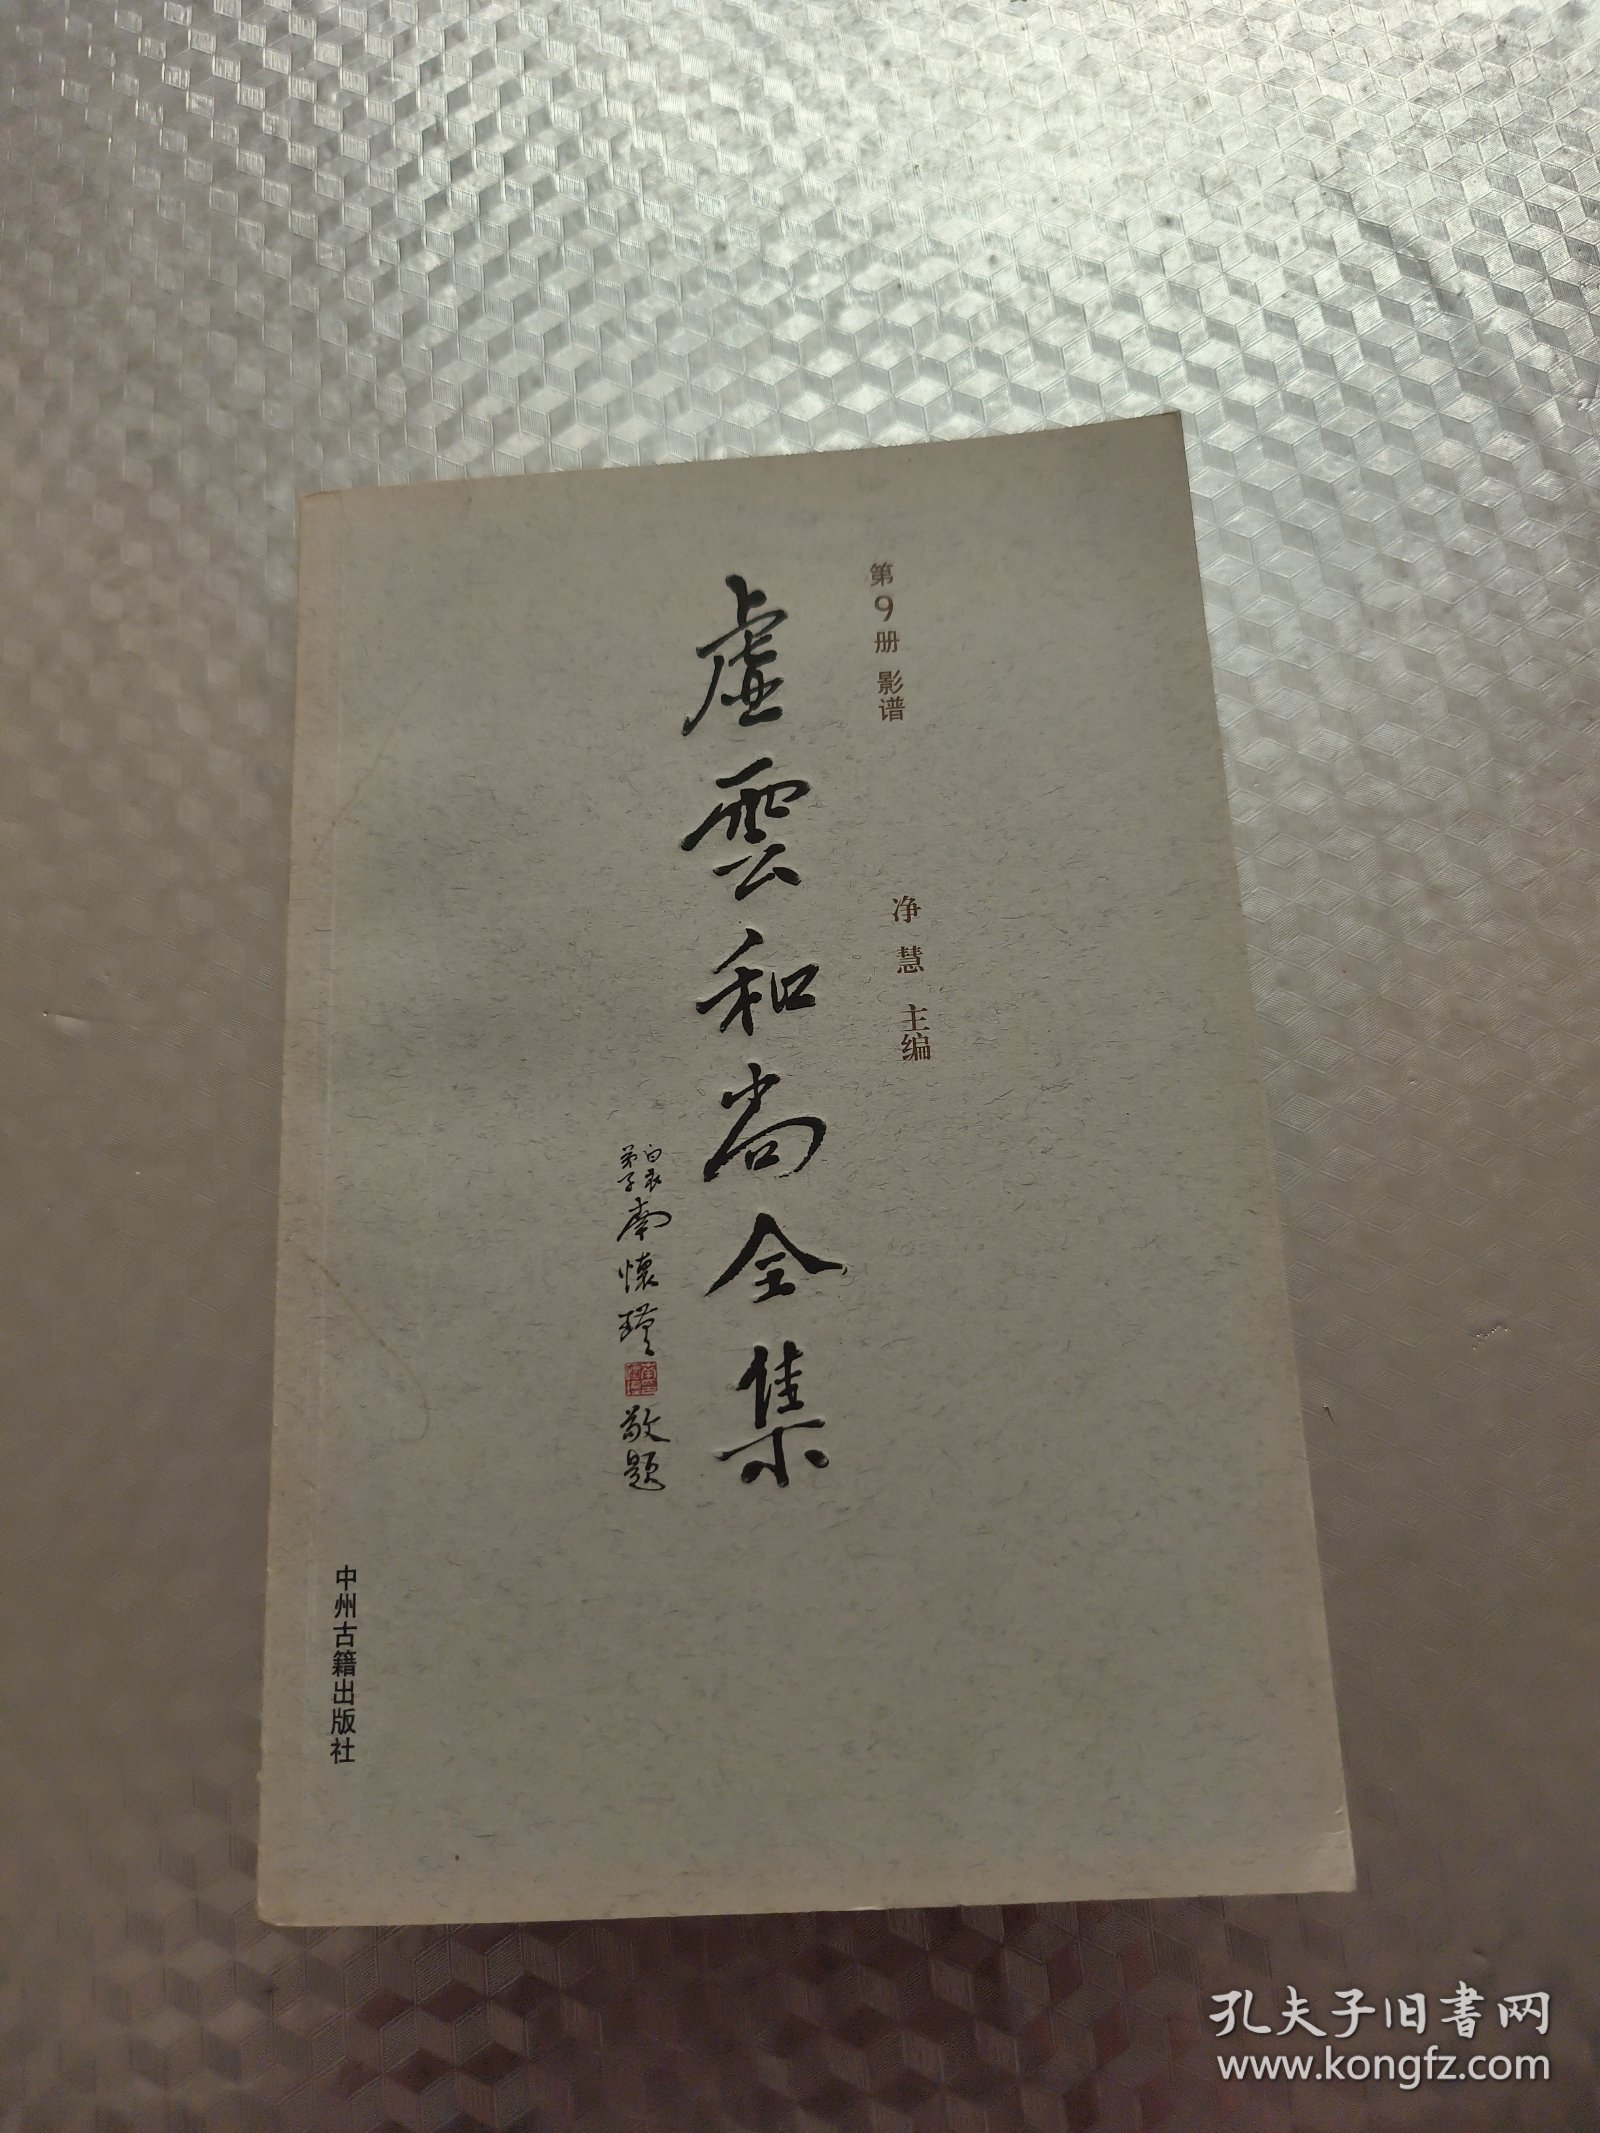 第9册 影谱
净慧 主编
虚雲和尚全集
白衣
弟子
南懷瑾
敬题
中州古籍出版社
孔夫子旧書网
www.kongfz.com